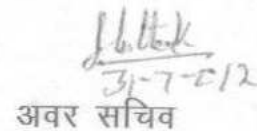 31-7-2012
अवर सचिव